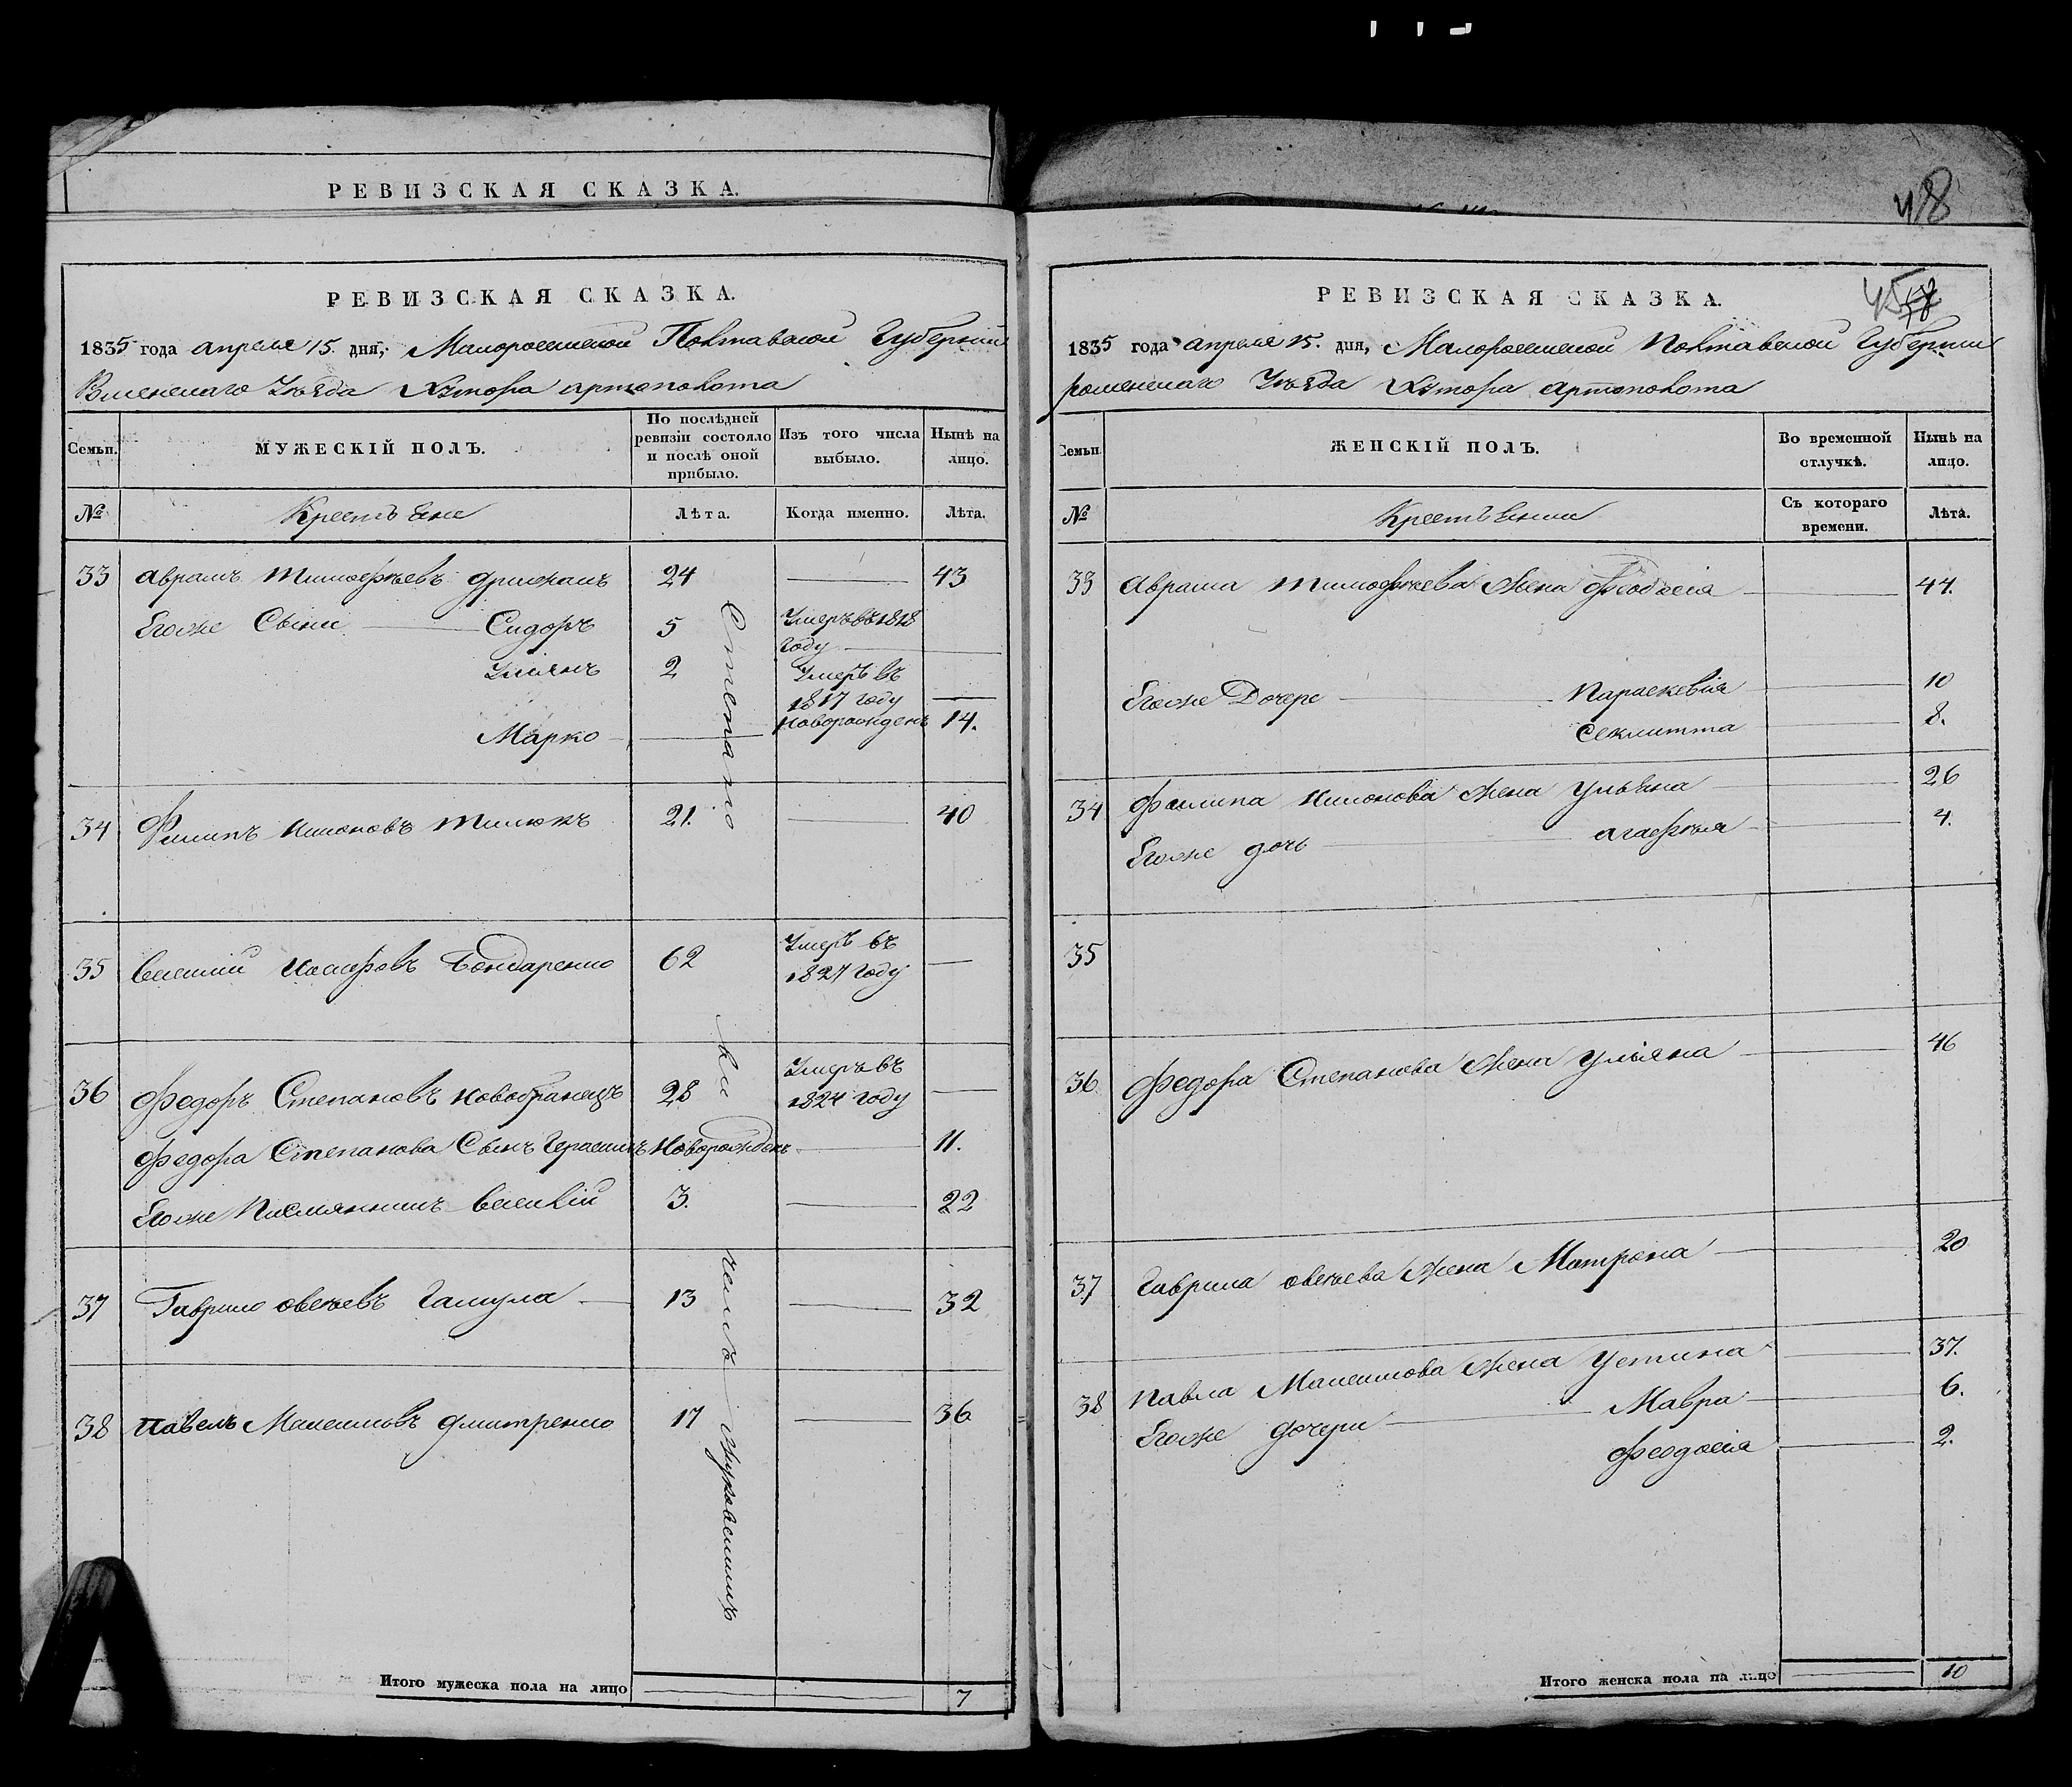 РЕВИЗСКАЯ СКАЗКА.
РЕВИЗСКАЯ СКАЗКА.
1835 года апреля 15. дня, Малоросійской Полтавской Губерніи
Роменскаго Уѣзда Хутора артополота
Семьи. МУЖЕСКІЙ ПОЛЪ. По послѣдней ревизіи состояло и послѣ оной прибыло. Изъ того числа выбыло. Нынѣ на лицо.
№ Крестьяне Лѣта. Когда именно. Лѣта.
33 аврамъ тимофѣевъ 24 43
Егоже Сыни Сидоръ 5 Умеръ въ 1818 году
Уліянъ 2 Умеръ въ 1817 году
Марко новорожденъ 14.
34 Филипъ 21. 40
35 василій Бондаренко 62 Умеръ въ 1827 году
36 федоръ Степановъ новобранецъ 28 Умеръ въ 1824 году
федора Степанова Сынъ Герасимъ новорожденъ 11.
Егоже Племянникъ василій 3. 22
37 Гаврило овсѣевъ 13 32
38 павелъ Максимовъ дмитренко 17 36
Степана
Итого мужеска пола на лицо 7
48
45
РЕВИЗСКАЯ СКАЗКА.
1835 года апреля 15. дня, Малоросійской Полтавской Губерніи
роменскаго Уѣзда Хутора артополота
Семьи ЖЕНСКІЙ ПОЛЪ. Во временной отлучкѣ. Нынѣ на лицо.
№ Крестьянки Съ котораго времени. Лѣта.
33 аврама тимофѣева жена феодосія 44.
Егоже Дочере параскевія 10
Секлитта 8.
34 филипа жена ульяна 26
Егоже дочь агафія 4.
35
36 федора Степанова жена уліяна 46
37 Гаврила овсѣева жена Матрона 20
38 павла Максимова жена устина 37.
Егоже дочери Мавра 6.
феодосія 2.
Итого женска пола на лицо 10